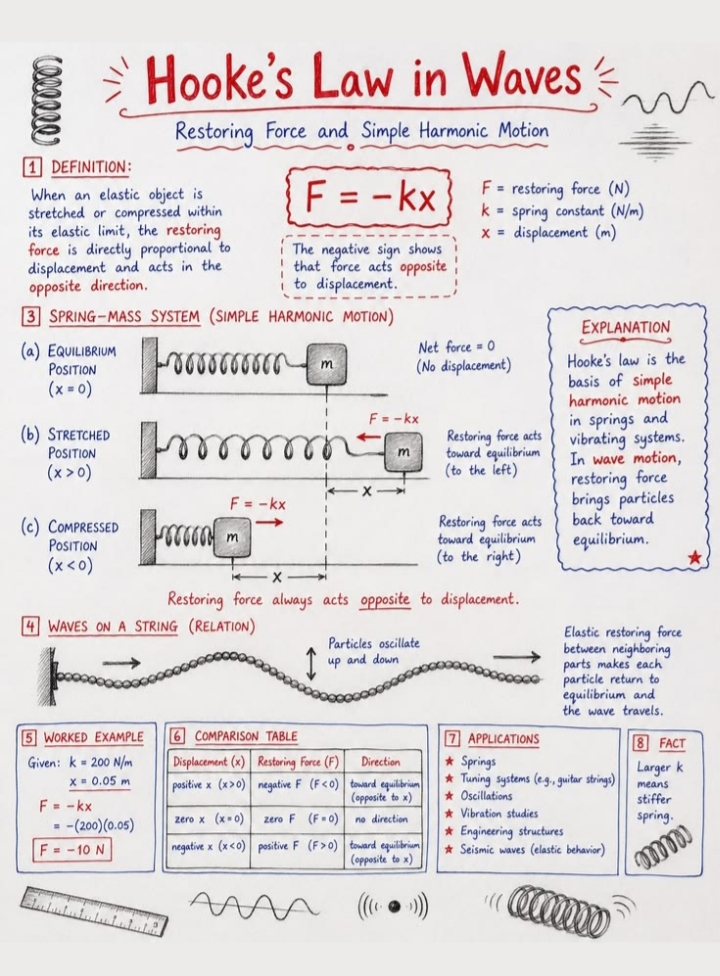 Hooke's Law in Waves
Restoring Force and Simple Harmonic Motion
1 DEFINITION:
When an elastic object is
stretched or compressed within
its elastic limit, the restoring
force is directly proportional to
displacement and acts in the
opposite direction.
F = −kx
The negative sign shows
that force acts opposite
to displacement.
F = restoring force (N)
k = spring constant (N/m)
x = displacement (m)
3 SPRING-MASS SYSTEM (SIMPLE HARMONIC MOTION)
(a) EQUILIBRIUM
POSITION
(x = 0)
m
Net force = 0
(No displacement)
(b) STRETCHED
POSITION
(x > 0)
F = −kx
m
x
Restoring force acts
toward equilibrium
(to the left)
(c) COMPRESSED
POSITION
(x < 0)
F = −kx
m
x
Restoring force acts
toward equilibrium
(to the right)
Restoring force always acts opposite to displacement.
EXPLANATION
Hooke's law is the
basis of simple
harmonic motion
in springs and
vibrating systems.
In wave motion,
restoring force
brings particles
back toward
equilibrium.
4 WAVES ON A STRING (RELATION)
Particles oscillate
up and down
Elastic restoring force
between neighboring
parts makes each
particle return to
equilibrium and
the wave travels.
5 WORKED EXAMPLE
Given: k = 200 N/m
x = 0.05 m
F = −kx
= −(200)(0.05)
F = −10 N
6 COMPARISON TABLE
Displacement (x) Restoring Force (F) Direction
positive x (x>0) negative F (F<0) toward equilibrium
(opposite to x)
zero x (x=0) zero F (F=0) no direction
negative x (x<0) positive F (F>0) toward equilibrium
(opposite to x)
7 APPLICATIONS
★ Springs
★ Tuning systems (e.g., guitar strings)
★ Oscillations
★ Vibration studies
★ Engineering structures
★ Seismic waves (elastic behavior)
8 FACT
Larger k
means
stiffer
spring.